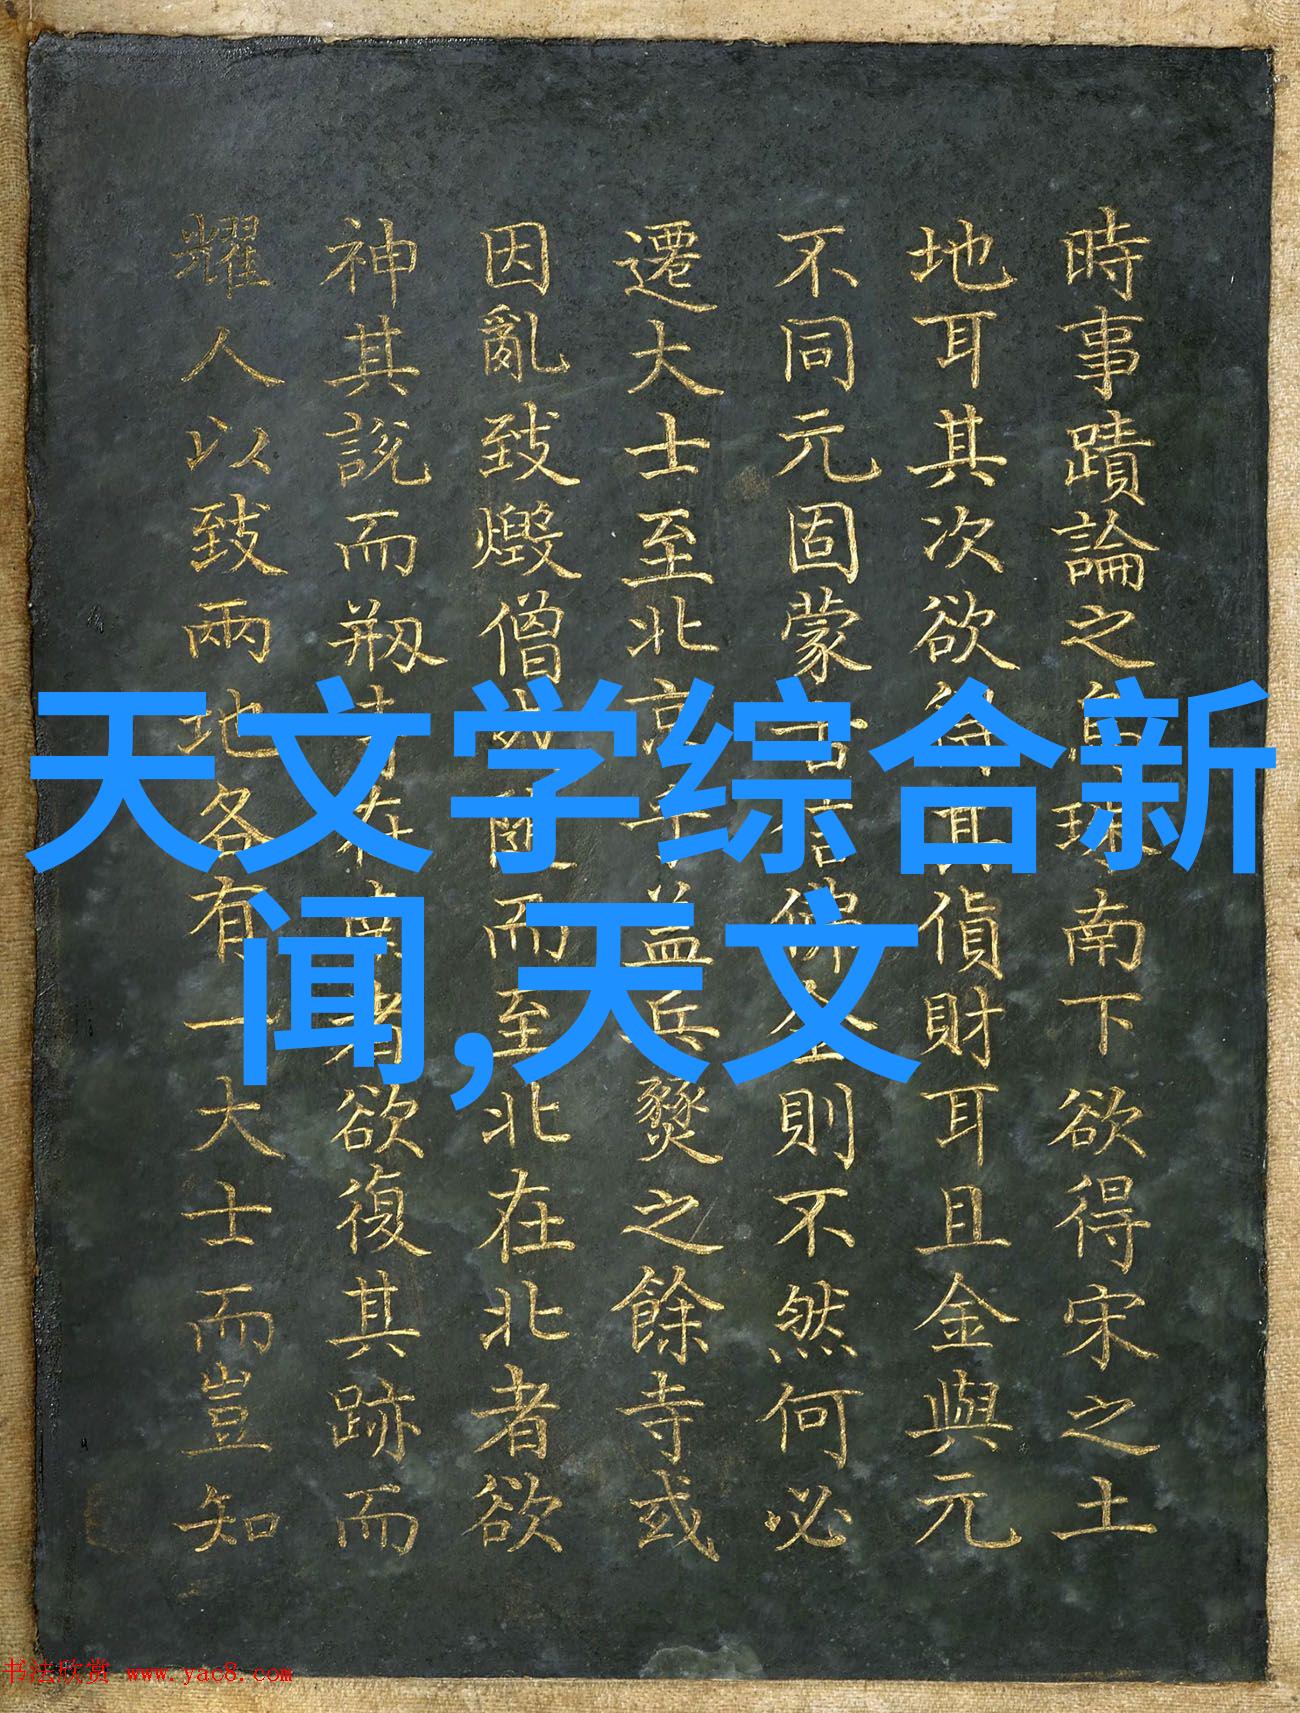 時事蹟論之 南下欲得宋之土
地耳其次欲 貨財耳且金與元
不同元固蒙 則不然何必
遷大士至北京 益兵燹之餘寺或
因亂致燬僧 而至北在北者欲
神其說而刱 在 者欲復其跡而
耀人以致兩地各有一大士而豈知
天文学综合新
闻,天文
书法欣赏 www.yac8.com